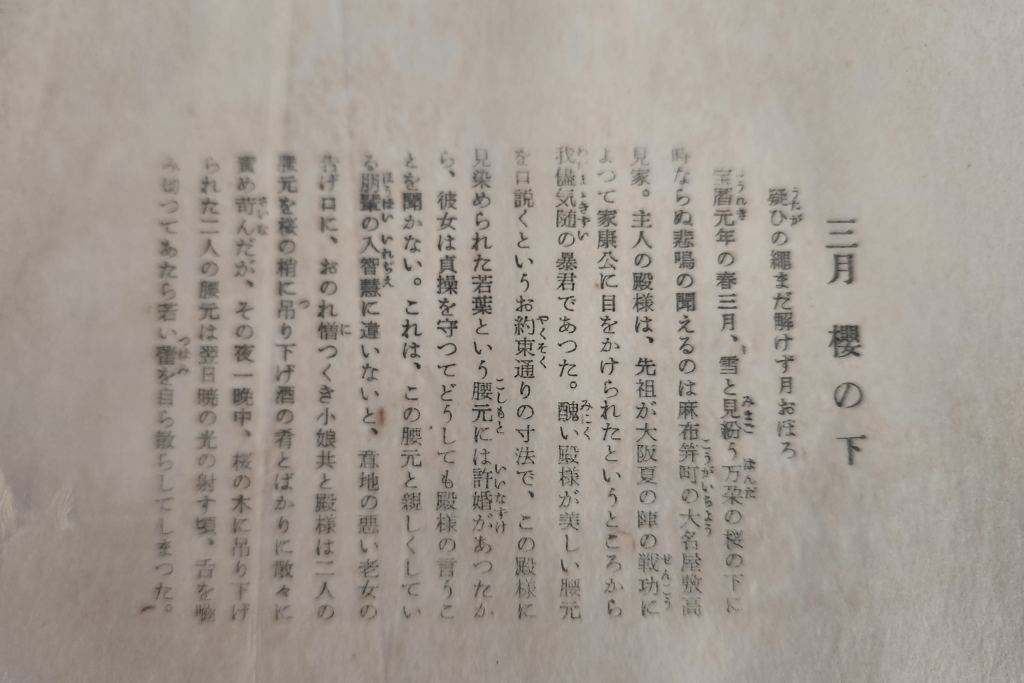 三月　櫻の下
疑ひの繩まだ解けず月おぼろ
宝暦元年の春三月、雪と見紛う万朶の桜の下に
時ならぬ悲鳴の聞えるのは麻布笄町の大名屋敷高
見家。主人の殿様は、先祖が大阪夏の陣の戦功に
よつて家康公に目をかけられたというところから
我儘気随の暴君であつた。醜い殿様が美しい腰元
を口説くというお約束通りの寸法で、この殿様に
見染められた若葉という腰元には許婚があつたか
ら、彼女は貞操を守つてどうしても殿様の言うこ
とを聞かない。これは、この腰元と親しくしてい
る朋輩の入智慧に違いないと、意地の悪い老女の
告げ口に、おのれ憎つくき小娘共と殿様は二人の
腰元を桜の梢に吊り下げ酒の肴とばかりに散々に
責め苛んだが、その夜一晩中、桜の木に吊り下げ
られた二人の腰元は翌日暁の光の射す頃、舌を噛
み切つてあたら若い蕾を自ら散らしてしまつた。